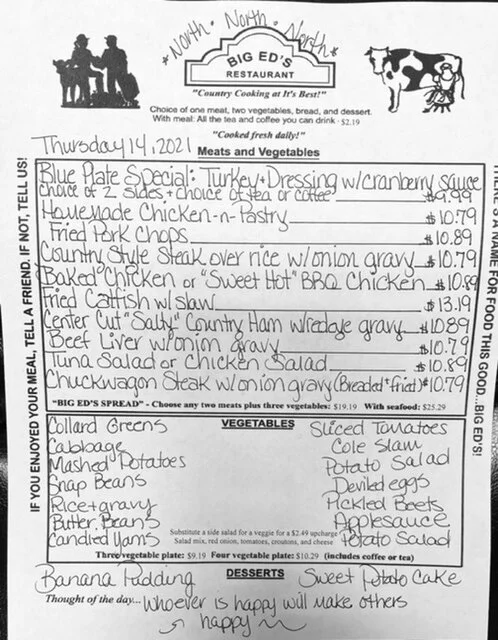 *North·North·North*
BIG ED'S
RESTAURANT
"Country Cooking at It's Best!"
Choice of one meat, two vegetables, bread, and dessert.
With meal: All the tea and coffee you can drink · $2.19
"Cooked fresh daily!"
Thursday 14, 2021
Meats and Vegetables
Blue Plate Special: Turkey + Dressing w/cranberry sauce
choice of 2 sides + choice of tea or coffee $9.99
Homemade Chicken-n-Pastry $10.79
Fried Pork Chops $10.89
Country Style Steak over rice w/onion gravy $10.79
Baked Chicken or "Sweet Hot" BBQ Chicken $10.89
Fried Catfish w/slaw $13.19
Center Cut "Salty" Country Ham w/redeye gravy $10.89
Beef Liver w/onion gravy $10.79
Tuna Salad or Chicken Salad $10.89
Chuckwagon Steak w/onion gravy (Breaded + Fried) $10.79
"BIG ED'S SPREAD" - Choose any two meats plus three vegetables: $19.19 With seafood: $25.29
VEGETABLES
Collard Greens
Cabbage
Mashed Potatoes
Snap Beans
Rice + gravy
Butter Beans
Candied Yams
Sliced Tomatoes
Cole Slaw
Potato Salad
Deviled eggs
Pickled Beets
Applesauce
Potato Salad
Substitute a side salad for a veggie for a $2.49 upcharge
Salad mix, red onion, tomatoes, croutons, and cheese
Three vegetable plate: $9.19 Four vegetable plate: $10.29 (includes coffee or tea)
DESSERTS
Banana Pudding
Sweet Potato Cake
Thought of the day... Whoever is happy will make others
happy
IF YOU ENJOYED YOUR MEAL, TELL A FRIEND. IF NOT, TELL US!
A NAME FOR FOOD THIS GOOD...BIG ED'S!